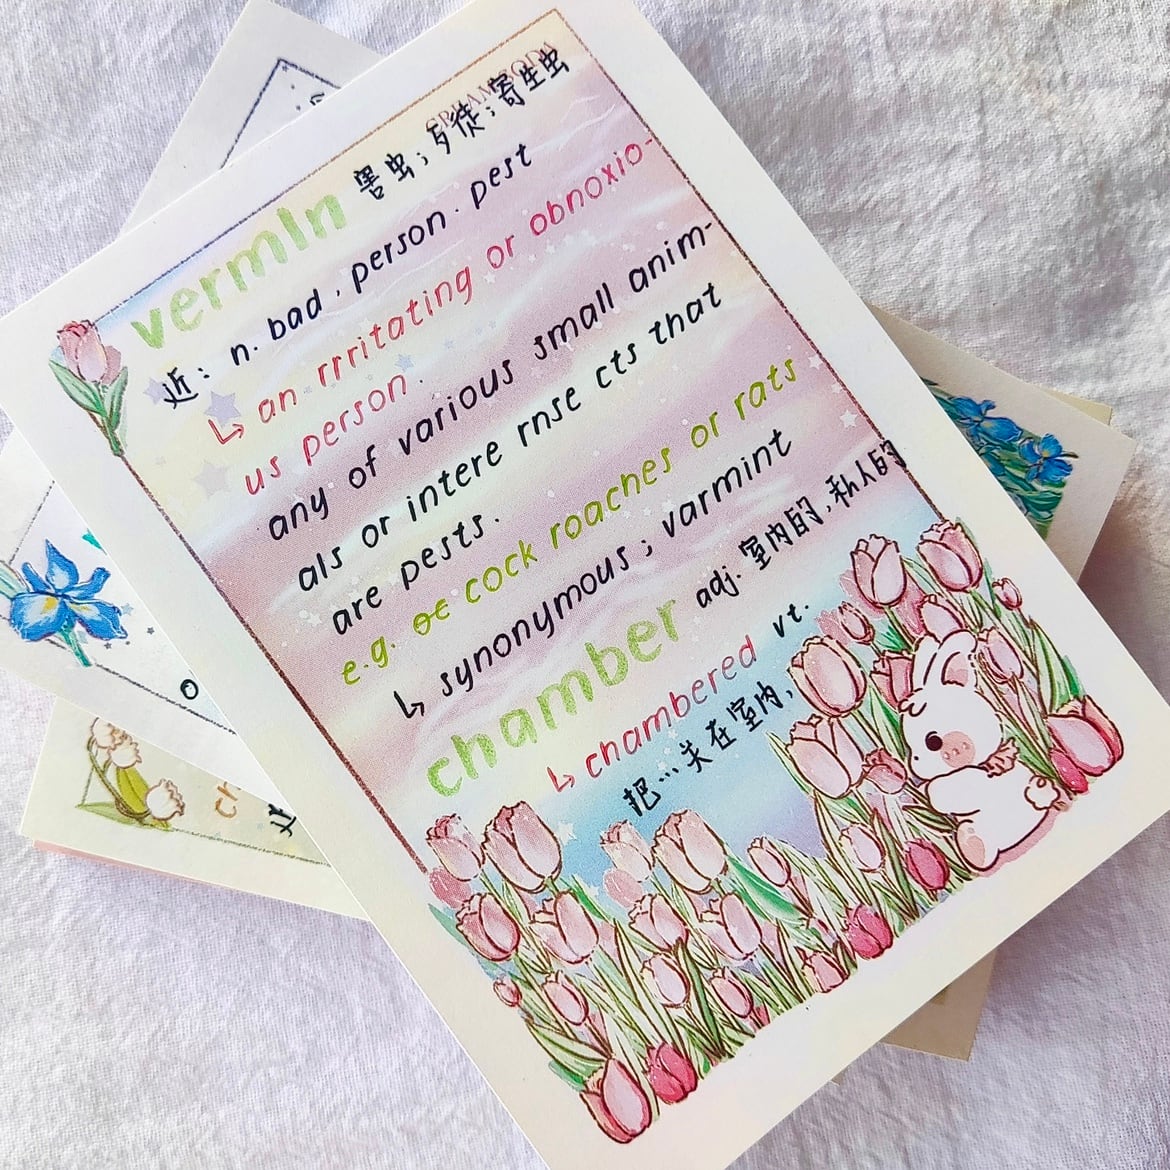 vermIn 害虫；歹徒；寄生虫
近： n. bad . person . pest
↳ an rrritating or obnoxio-
us person .
any of various small anim-
als or intere rnse cts that
are pests.
e.g. oc cock roaches or rats
↳ synonymous ; varmint
chamber adj. 室内的，私人的
↳ chambered vt.
把…关在室内，